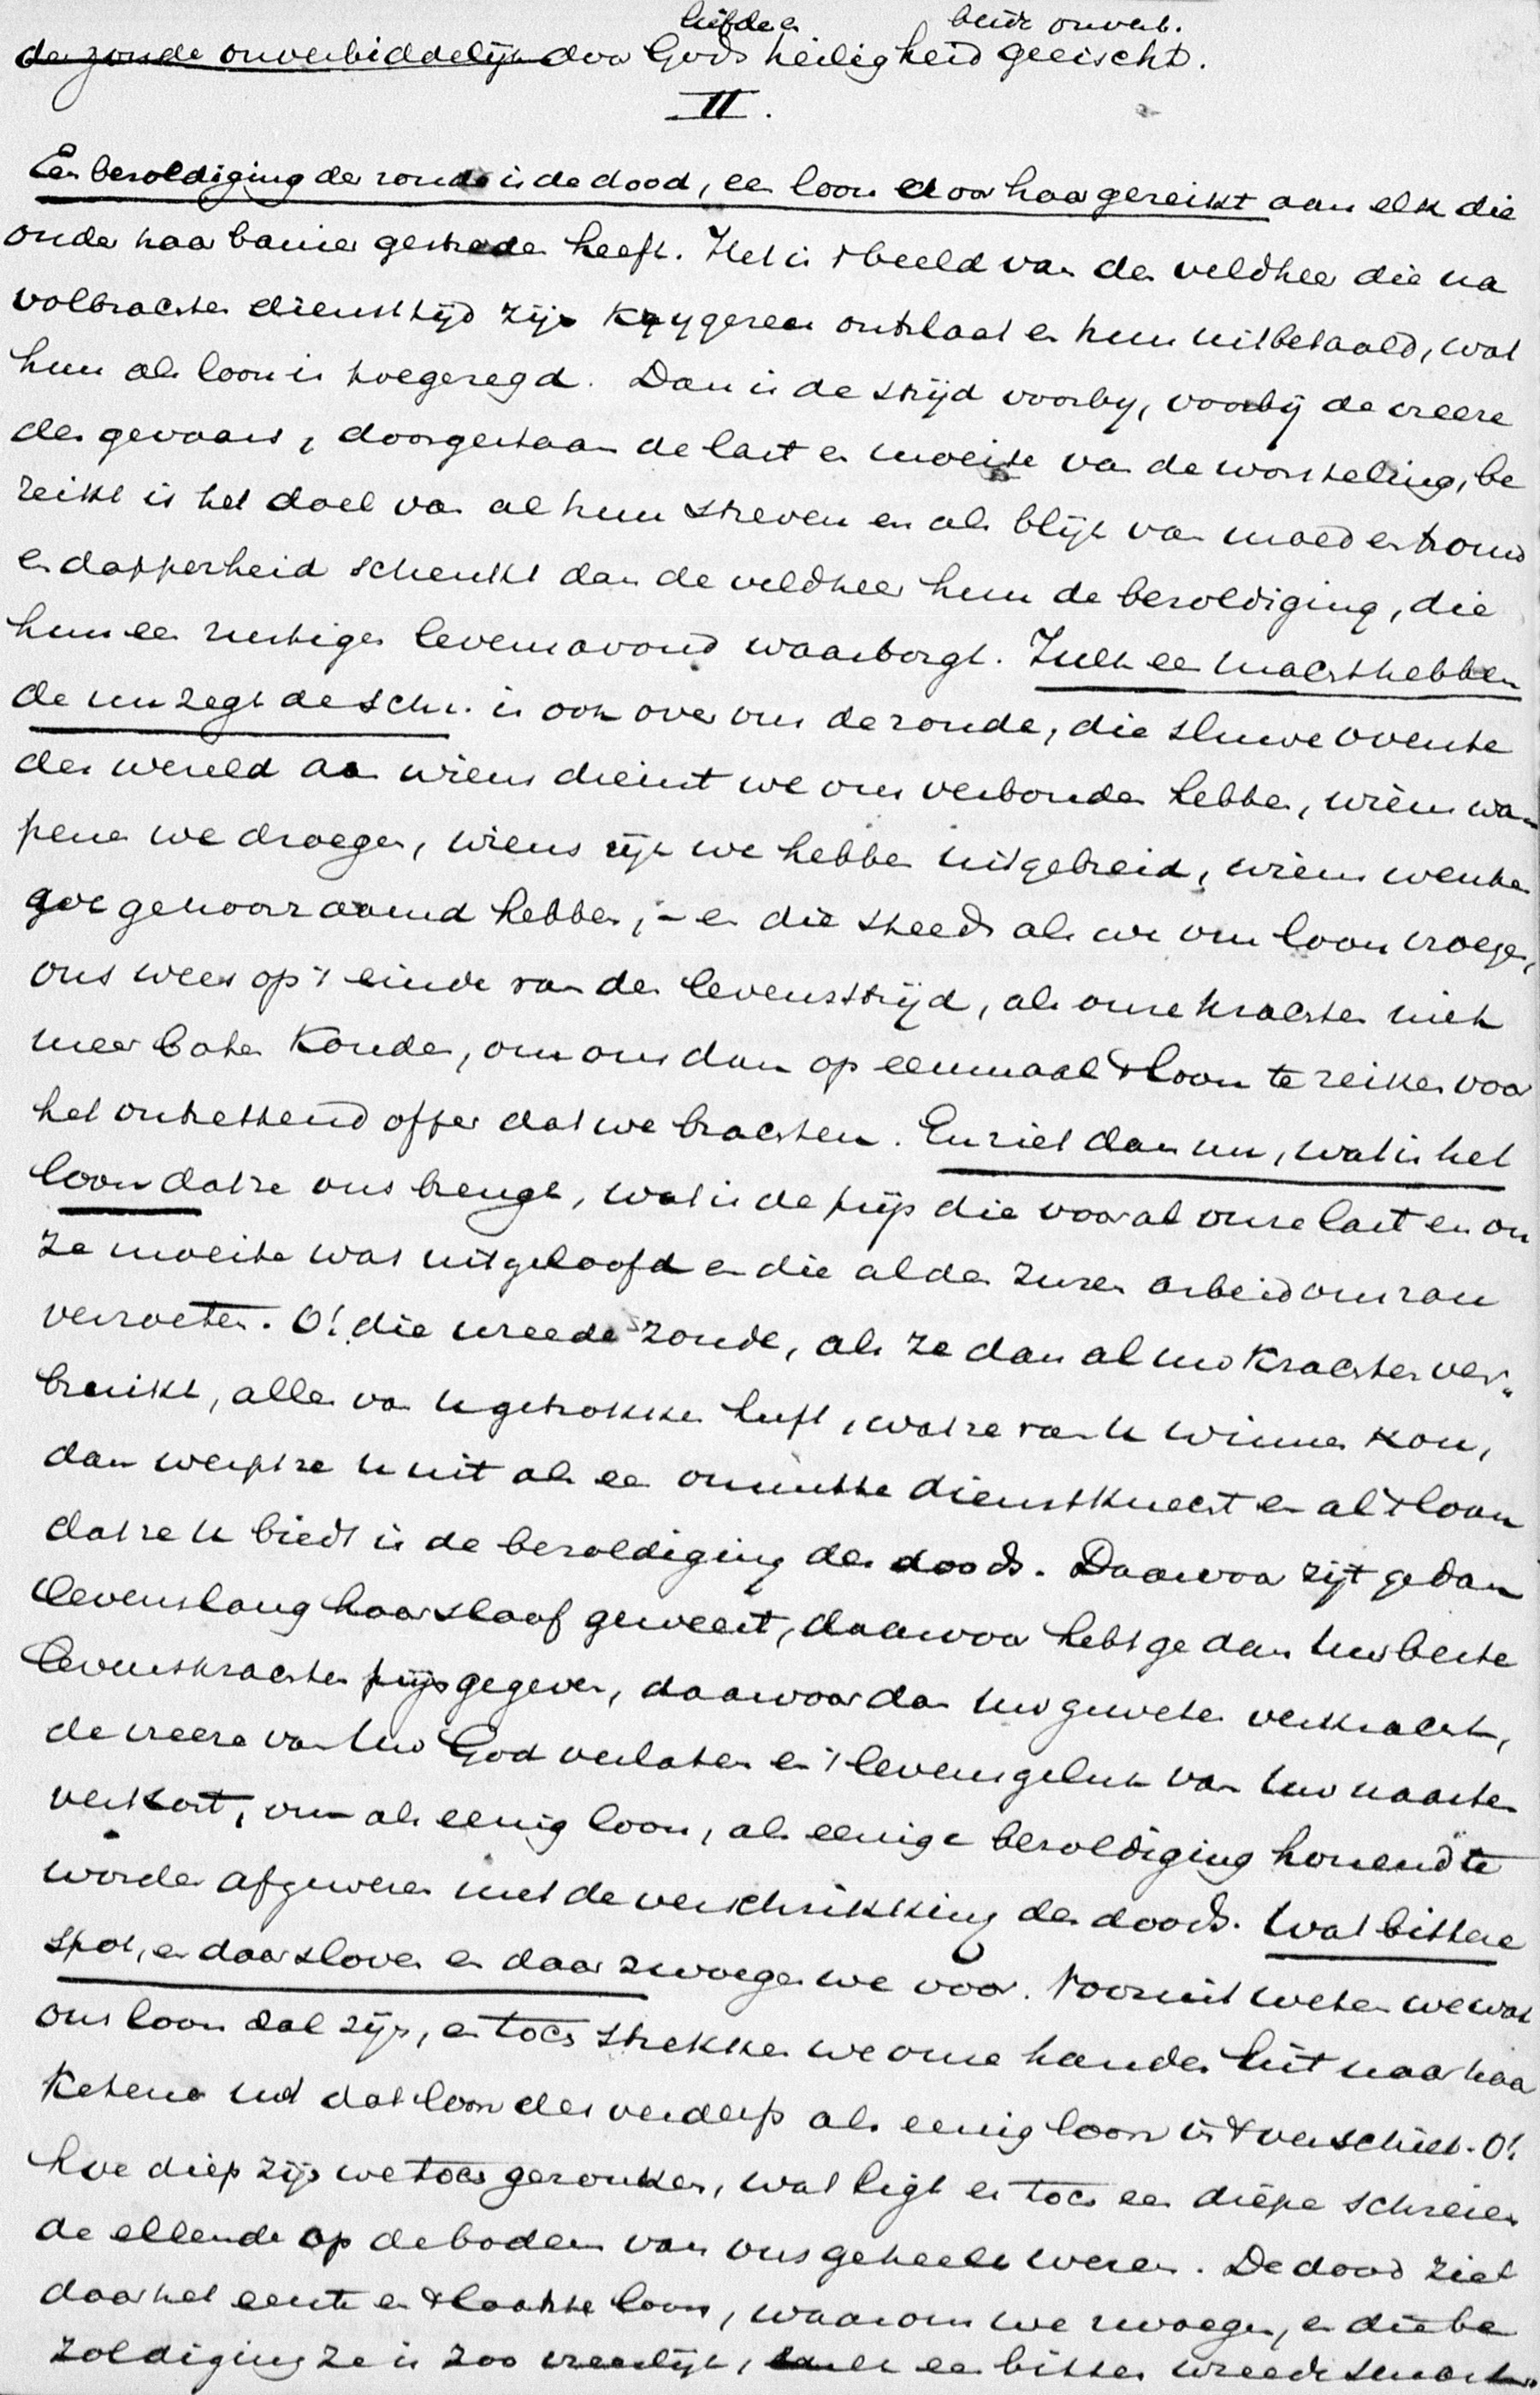 liefde en beide onverb.
der zonde onverbiddelijk door Gods heiligheid geëischt.
II.
Een bezoldiging der zonde is de dood, een loon door haar gereikt aan elk die
onder haar banier gestreden heeft. Het is 't beeld van den veldheer die na
volbrachten diensttijd zijn krygeren ontslaat en hun uitbetaald, wat
hun als loon is toegezegd. Dan is de strijd voorby, voorbij de vreeze
des gevaars, doorgestaan de last en moeite van de worsteling, be
reikt is het doel van al hun streven en als blijk van moed en trouw
en dapperheid schenkt dan de veldheer hun de bezoldiging, die
hun een rustigen levensavond waarborgt. Zulk een machthebben
de nu zegt de schr. is ook over ons de zonde, die sluwe overste
der wereld aan wiens dienst we ons verbonden hebben, wiens wa-
penen we droegen, wiens rijk we hebben uitgebreid, wiens wenken
we gehoorzaamd hebben, - en die steeds als we om loon vroegen,
ons wees op 't einde van den levensstrijd, als onze krachten niet
meer baten konden, om ons dan op eenmaal 't loon te reiken voor
het ontzettend offer dat we brachten. En ziet dan nu, wat is het
loon dat ze ons brengt, wat is de prijs die voor al onze last en on
ze moeite was uitgeloofd en die al den zuren arbeid ons zou
verzoeten. O! die wreede zonde, als ze dan al uw krachten ver-
bruikt, alles van u getrokken heeft, wat ze van u winnen kon,
dan werpt ze u uit als een onnutte dienstknecht en al 't loon
dat ze u biedt is de bezoldiging des doods. Daarvoor zijt ge dan
levenslang haar slaaf geweest, daarvoor hebt ge dan uw beste
levenskrachten prijs gegeven, daarvoor dan uw geweten verkracht,
de vreeze van uw God verlaten en 't levensgeluk van uw naasten
verkort, om als eenig loon, als eenige bezoldiging honend te
worden afgewezen met de verschrikking des doods. Wat bittere
spot, en daar sloven en daar zwoegen we voor. Vooruit weten we wat
ons loon zal zijn, en toch strekken we onze handen uit naar haar
ketenen met dat loon des verderfs als eenig loon in 't verschiet. O!
hoe diep zijn we toch gezonken, wat ligt er toch een diepe schreien
de ellende op den bodem van ons geheele wezen. De dood ziet
daar het eerste en 't laatste loon, waarom we zwoegen, en die be
zoldiging ze is zoo vreeselijk, een bitter wreede smart